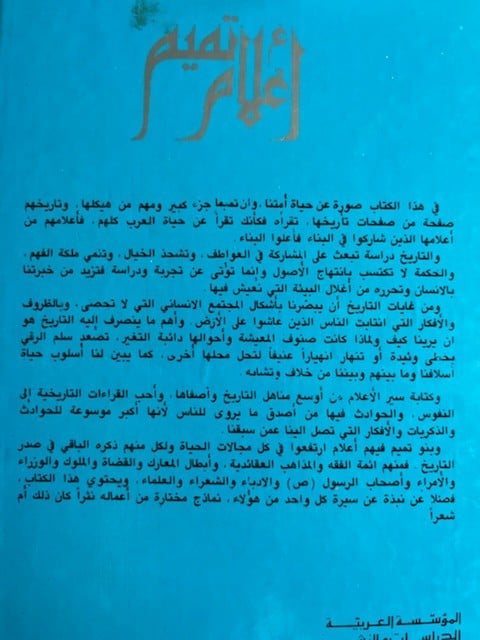 أعلام تميم
في هذا الكتاب صورة عن حياة أمتنا، وان تميما جزء كبير ومهم من هيكلها، وتاريخهم
صفحة من صفحات تأريخها، تقرأه فكأنك تقرأ عن حياة العرب كلهم، فأعلامهم من
أعلامها الذين شاركوا في البناء فأعلوا البناء.
والتاريخ دراسة تبعث على المشاركة في العواطف، وتشحذ الخيال، وتنمي ملكة الفهم،
والحكمة لا تكتسب بانتهاج الأصول وإنما تؤتى عن تجربة ودراسة فتزيد من خبرتنا
بالانسان وتحرره من أغلال البيئة التي نعيش فيها.
ومن غايات التاريخ أن يبصرنا بأشكال المجتمع الانساني التي لا تحصى، وبالظروف
والأفكار التي انتابت الناس الذين عاشوا على الأرض. وأهم ما ينصرف إليه التاريخ هو
ان يرينا كيف ولماذا كانت صنوف المعيشة وأحوالها دائبة التغير، تصعد سلم الرقي
بخطى وئيدة أو تنهار انهياراً عنيفاً لتحل محلها أخرى، كما يبين لنا أسلوب حياة
أسلافنا وما بينهم وبيننا من خلاف وتشابه.
وكتابة سير الأعلام من أوسع مناهل التاريخ وأصفاها، وأحب القراءات التاريخية إلى
النفوس، والحوادث فيها من أصدق ما يروى للناس لأنها أكبر موسوعة للحوادث
والذكريات والأفكار التي تصل الينا عمن سبقنا.
وبنو تميم فيهم أعلام ارتفعوا في كل مجالات الحياة ولكل منهم ذكره الباقي في صدر
التاريخ. فمنهم ائمة الفقه والمذاهب العقائدية، وأبطال المعارك والقضاة والملوك والوزراء
والأمراء وأصحاب الرسول (ص) والادباء والشعراء والعلماء، ويحتوي هذا الكتاب،
فضلا عن نبذة عن سيرة كل واحد من هؤلاء، نماذج مختارة من أعماله نثراً كان ذلك أم
شعراً
المؤسسة العربية
للدراسات والنشر